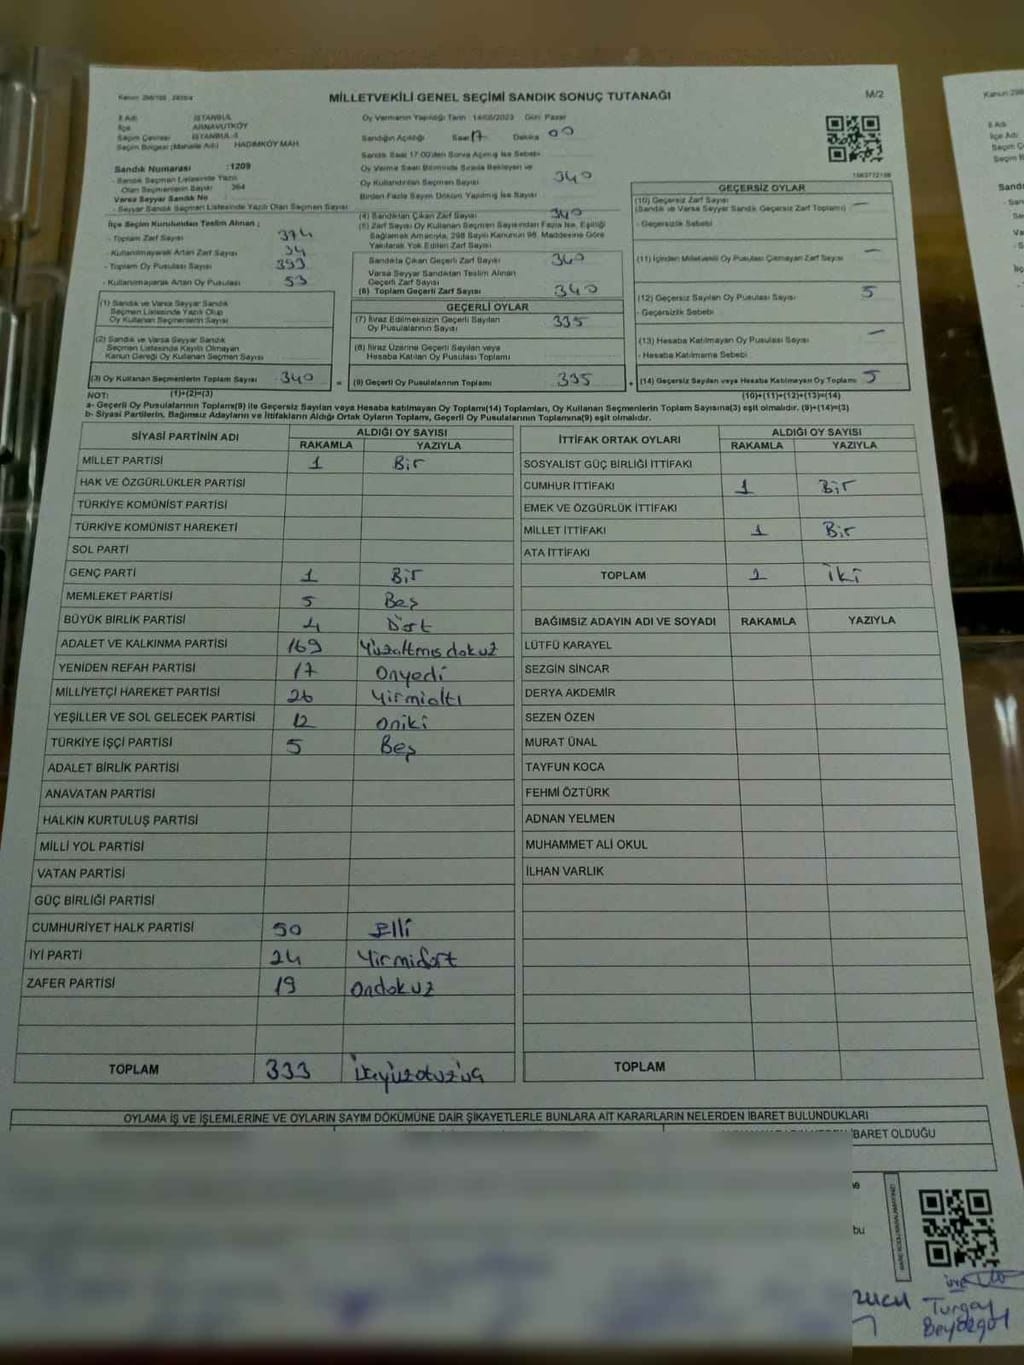 MİLLETVEKİLİ GENEL SEÇİMİ SANDIK SONUÇ TUTANAĞI
M/2
İl Adı : İSTANBUL
İlçe : ARNAVUTKÖY
Seçim Çevresi : İSTANBUL-3
Seçim Bölgesi (Mahalle Adı) : HADIMKÖY MAH.
Oy Vermenin Yapıldığı Tarih : 14/05/2023 Gün: Pazar
Sandığın Açıldığı Saat 17 Dakika 00
Sandık Saat 17.00'den Sonra Açılmış İse Sebebi
Sandık Numarası : 1209
- Sandık Seçmen Listesinde Yazılı
Olan Seçmenlerin Sayısı : 364
Varsa Seyyar Sandık No
- Seyyar Sandık Seçmen Listesinde Yazılı Olan Seçmen Sayısı
Oy Verme Saati Bitiminde Sırada Bekleyen ve
Oy Kullandırılan Seçmen Sayısı 340
Birden Fazla Sayım Döküm Yapılmış İse Sayısı
İlçe Seçim Kurulundan Teslim Alınan ;
- Toplam Zarf Sayısı 374
- Kullanılmayarak Artan Zarf Sayısı 34
- Toplam Oy Pusulası Sayısı 393
- Kullanılmayarak Artan Oy Pusulası 53
(1) Sandık ve Varsa Seyyar Sandık
Seçmen Listesinde Yazılı Olup
Oy Kullanan Seçmenlerin Sayısı
(2) Sandık ve Varsa Seyyar Sandık
Seçmen Listesinde Kayıtlı Olmayan
Kanun Gereği Oy Kullanan Seçmen Sayısı
(3) Oy Kullanan Seçmenlerin Toplam Sayısı 340
(1)+(2)=(3)
(4) Sandıktan Çıkan Zarf Sayısı 340
(5) Zarf Sayısı Oy Kullanan Seçmen Sayısından Fazla İse, Eşitliği
Sağlamak Amacıyla, 298 Sayılı Kanunun 98. Maddesine Göre
Yakılarak Yok Edilen Zarf Sayısı
Sandıkta Çıkan Geçerli Zarf Sayısı 340
Varsa Seyyar Sandıktan Teslim Alınan
Geçerli Zarf Sayısı
(6) Toplam Geçerli Zarf Sayısı 340
GEÇERLİ OYLAR
(7) İtiraz Edilmeksizin Geçerli Sayılan
Oy Pusulalarının Sayısı 335
(8) İtiraz Üzerine Geçerli Sayılan veya
Hesaba Katılan Oy Pusulası Toplamı
= (9) Geçerli Oy Pusulalarının Toplamı 335
GEÇERSİZ OYLAR
(10) Geçersiz Zarf Sayısı —
(Sandık ve Varsa Seyyar Sandık Geçersiz Zarf Toplamı)
- Geçersizlik Sebebi
(11) İçinden Milletvekili Oy Pusulası Çıkmayan Zarf Sayısı —
(12) Geçersiz Sayılan Oy Pusulası Sayısı 5
- Geçersizlik Sebebi
(13) Hesaba Katılmayan Oy Pusulası Sayısı —
- Hesaba Katılmama Sebebi
+ (14) Geçersiz Sayılan veya Hesaba Katılmayan Oy Toplamı 5
(10)+(11)+(12)+(13)=(14)
NOT:
a- Geçerli Oy Pusulalarının Toplamı(9) ile Geçersiz Sayılan veya Hesaba katılmayan Oy Toplamı(14) Toplamları, Oy Kullanan Seçmenlerin Toplam Sayısına(3) eşit olmalıdır. (9)+(14)=(3)
b- Siyasi Partilerin, Bağımsız Adayların ve İttifakların Aldığı Ortak Oyların Toplamı, Geçerli Oy Pusulalarının Toplamına(9) eşit olmalıdır.
SİYASİ PARTİNİN ADI ALDIĞI OY SAYISI
RAKAMLA YAZIYLA
MİLLET PARTİSİ 1 Bir
HAK VE ÖZGÜRLÜKLER PARTİSİ
TÜRKİYE KOMÜNİST PARTİSİ
TÜRKİYE KOMÜNİST HAREKETİ
SOL PARTİ
GENÇ PARTİ 1 Bir
MEMLEKET PARTİSİ 5 Beş
BÜYÜK BİRLİK PARTİSİ 4 Dört
ADALET VE KALKINMA PARTİSİ 169 Yüzaltmış dokuz
YENİDEN REFAH PARTİSİ 17 Onyedi
MİLLİYETÇİ HAREKET PARTİSİ 26 Yirmialtı
YEŞİLLER VE SOL GELECEK PARTİSİ 12 oniki
TÜRKİYE İŞÇİ PARTİSİ 5 Beş
ADALET BİRLİK PARTİSİ
ANAVATAN PARTİSİ
HALKIN KURTULUŞ PARTİSİ
MİLLİ YOL PARTİSİ
VATAN PARTİSİ
GÜÇ BİRLİĞİ PARTİSİ
CUMHURİYET HALK PARTİSİ 50 Elli
İYİ PARTİ 24 Yirmidört
ZAFER PARTİSİ 19 Ondokuz
TOPLAM 333
İTTİFAK ORTAK OYLARI ALDIĞI OY SAYISI
RAKAMLA YAZIYLA
SOSYALİST GÜÇ BİRLİĞİ İTTİFAKI
CUMHUR İTTİFAKI 1 Bir
EMEK VE ÖZGÜRLÜK İTTİFAKI
MİLLET İTTİFAKI 1 Bir
ATA İTTİFAKI
TOPLAM 2 İki
BAĞIMSIZ ADAYIN ADI VE SOYADI RAKAMLA YAZIYLA
LÜTFÜ KARAYEL
SEZGİN SİNCAR
DERYA AKDEMİR
SEZEN ÖZEN
MURAT ÜNAL
TAYFUN KOCA
FEHMİ ÖZTÜRK
ADNAN YELMEN
MUHAMMET ALİ OKUL
İLHAN VARLIK
TOPLAM
OYLAMA İŞ VE İŞLEMLERİNE VE OYLARIN SAYIM DÖKÜMÜNE DAİR ŞİKAYETLERLE BUNLARA AİT KARARLARIN NELERDEN İBARET BULUNDUKLARI
İBARET OLDUĞU
bu
Turgay